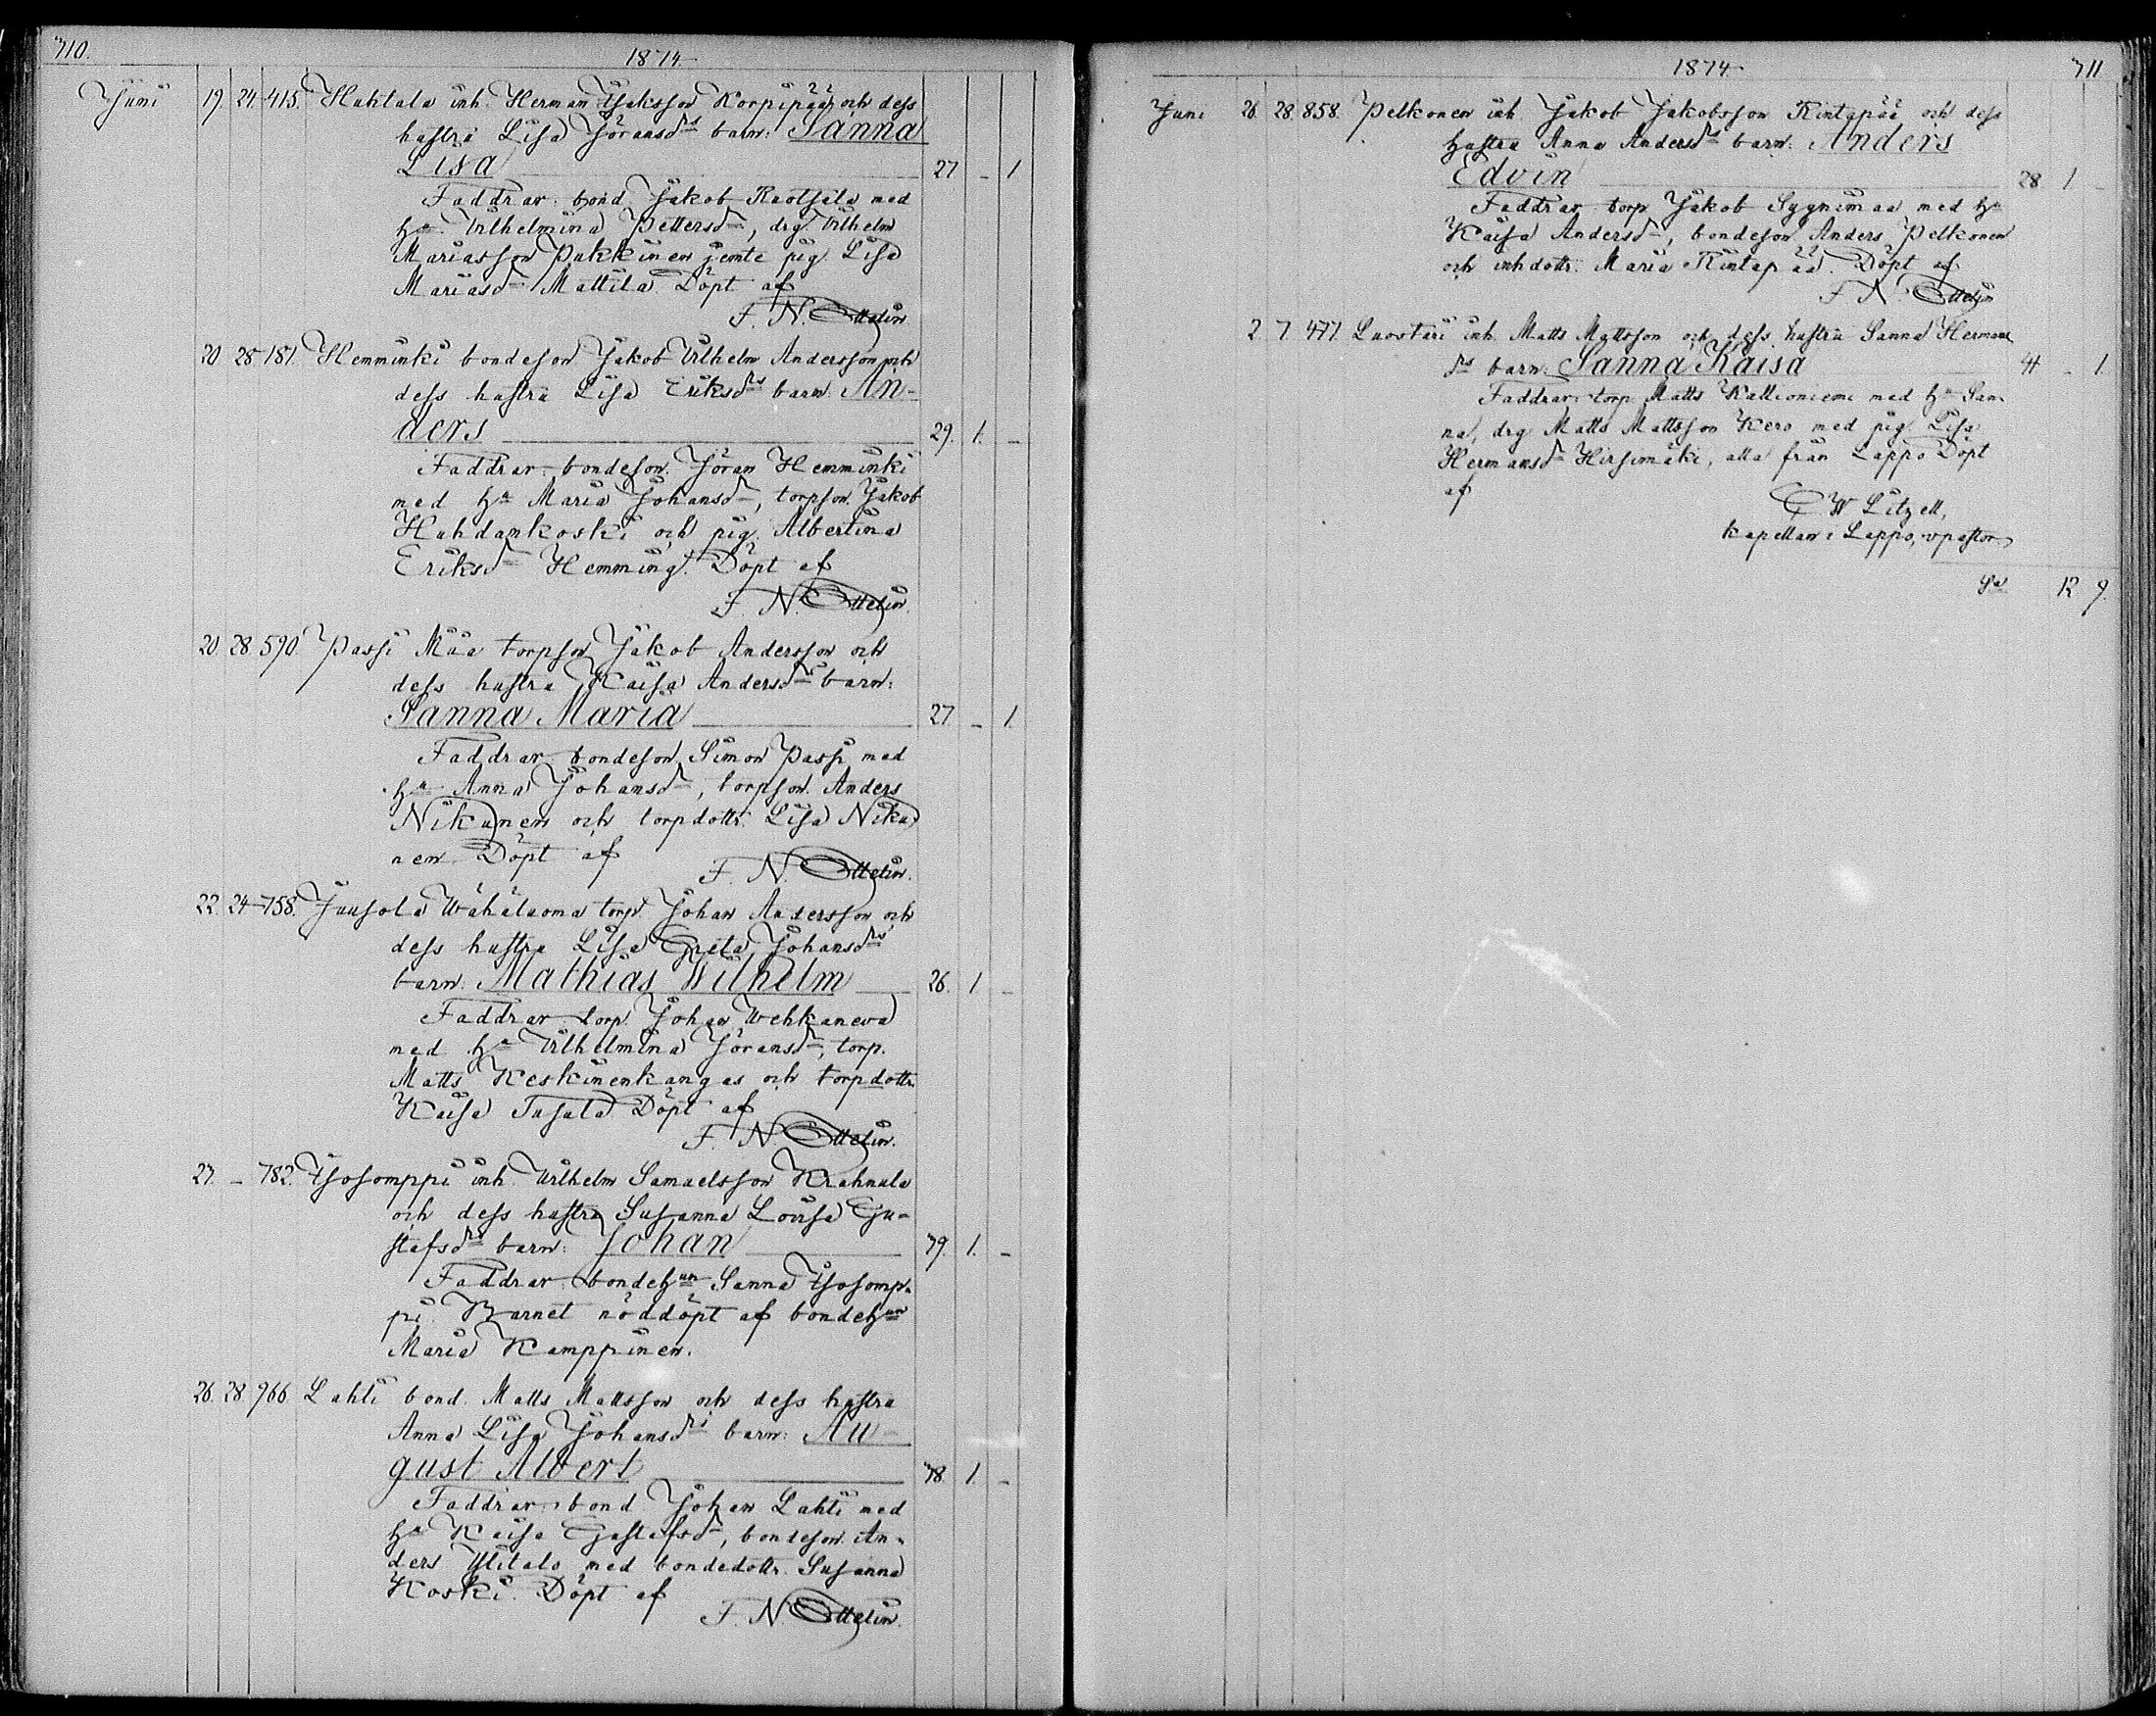 710.
1874.
Juni 19. 24. 415. Huhtala inh. Herman Isaksson Korpipää och dess
hustru Lisa Jöransdrs barn: Sanna
Lisa 27 - 1
Faddrar: bond. Jakob Ruotsala med
ha Wilhelmina Pettersdr, drg. Wilhelm
Mariasson Pukkinen jemte pig. Lisa
Mariasdr Mattila. Döpt af
F. N. Ottelin.
20 28 181. Hemminki bondeson Jakob Wilhelm Andersson och
dess hustru Lisa Eriksdrs barn: An-
ders 29. 1. -
Faddrar: bondeson Jöran Hemminki
med ha Maria Johansdr, torpson Jakob
Huhdankoski och pig. Albertina
Eriksdr Hemming. Döpt af
F. N. Ottelin.
20. 28. 590. Passi Mäa torpson Jakob Andersson och
dess hustru Kaisa Andersdrs barn:
Sanna Maria 27. - 1.
Faddrar: bondeson Simon Passi med
ha Anna Johansdr, torpson Anders
Nikunen och torpdottr. Lisa Niku
nen. Döpt af F. N. Ottelin.
22. 24. 758. Juusola Wähäluoma torp. Johan Andersson och
dess hustru Lisa Greta Johansdrs
barn: Mathias Wilhelm 26. 1. -
Faddrar torp. Johan Wehkaneva
med ha Wilhelmina Jöransdr, torp.
Matts Keskinenkangas och torpdottr.
Kaisa Tusala. Döpt af
F. N. Ottelin.
27. - 782. Isosomppi inh. Wilhelm Samuelsson Krahnula
och dess hustru Susanna Lovisa Gu-
stafsdrs barn: Johan 79. 1. -
Faddrar: bondehun Sanna Isosomp-
pi. Barnet nöddöpt af bondehun
Maria Kamppinen.
26. 28. 966. Lahti bond. Matts Mattsson och dess hustru
Anna Lisa Johansdrs barn: Au-
gust Albert 78. 1. -
Faddrar: bond. Johan Lahti med
ha Kaisa Gustafsdr, bondeson An-
ders Ylitalo med bondedottr. Susanna
Koski. Döpt af
F. N. Ottelin.
1874.
711
Juni 26. 28. 858. Pelkonen inh. Jakob Jakobsson Rintapää och dess
hustru Anna Andersdrs barn: Anders
Edvin 28 1. -
Faddrar torp. Jakob Syynimaa med ha
Kaisa Andersdr, bondeson Anders Pelkonen
och inhdottr. Maria Rintapää. Döpt af
F. N. Ottelin
2. 7. 477. Luostari inh. Matts Mattsson och dess hustru Sanna Hermans
drs barn: Sanna Kaisa - 1.
Faddrar: torp. Matts Kallioniemi med ha San-
na, drg. Matts Mattsson Kero med pig. Lisa
Hermansdr Hirsimäki, alla från Lappo. Döpt
af
C W Litzell,
kapellan i Lappo, vpastor
Sa 12 9.